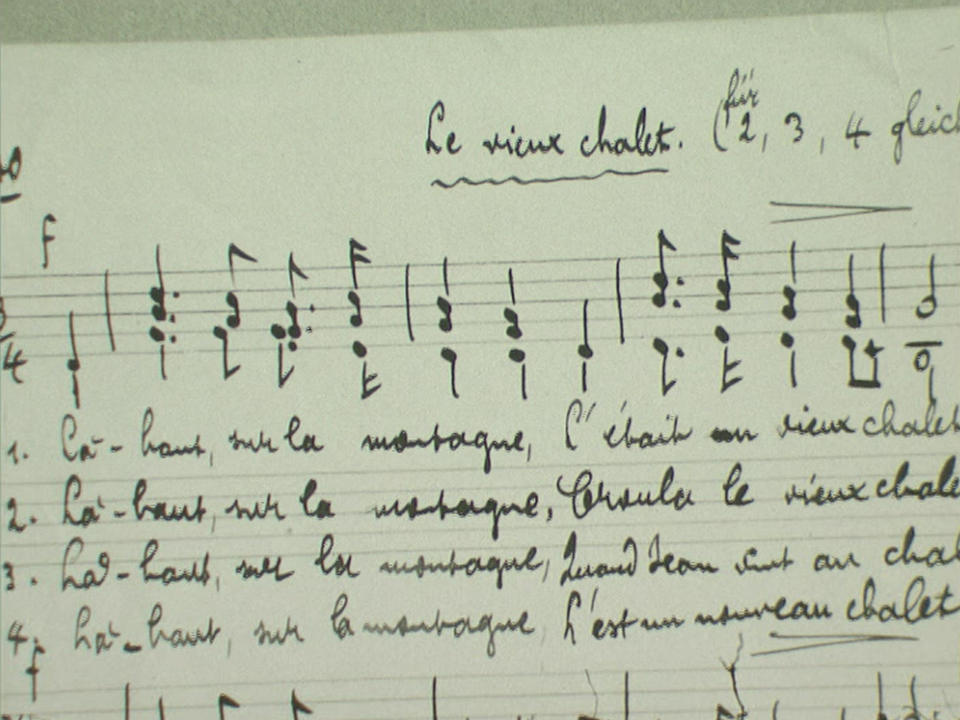 Le vieux chalet. (für 2, 3, 4 gleich
f
3
4
1. Là-haut, sur la montagne, C'était un vieux chalet
2. Là-haut, sur la montagne, Croula le vieux chale
3. Là-haut, sur la montagne, Quand Jean vint au chal
4. Là-haut, sur la montagne, L'est un nouveau chalet
f